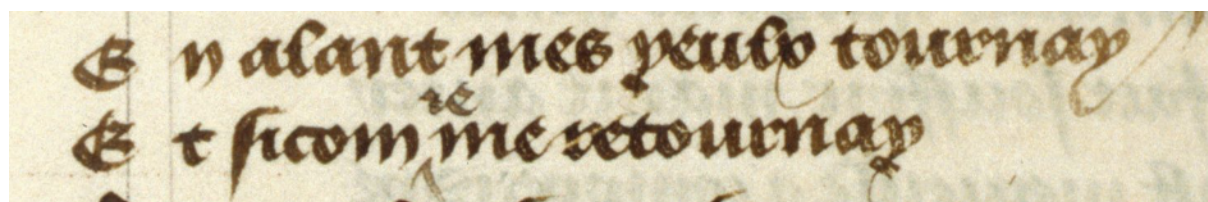 En alant mes yeulx tournay
Et sicom re me retournay